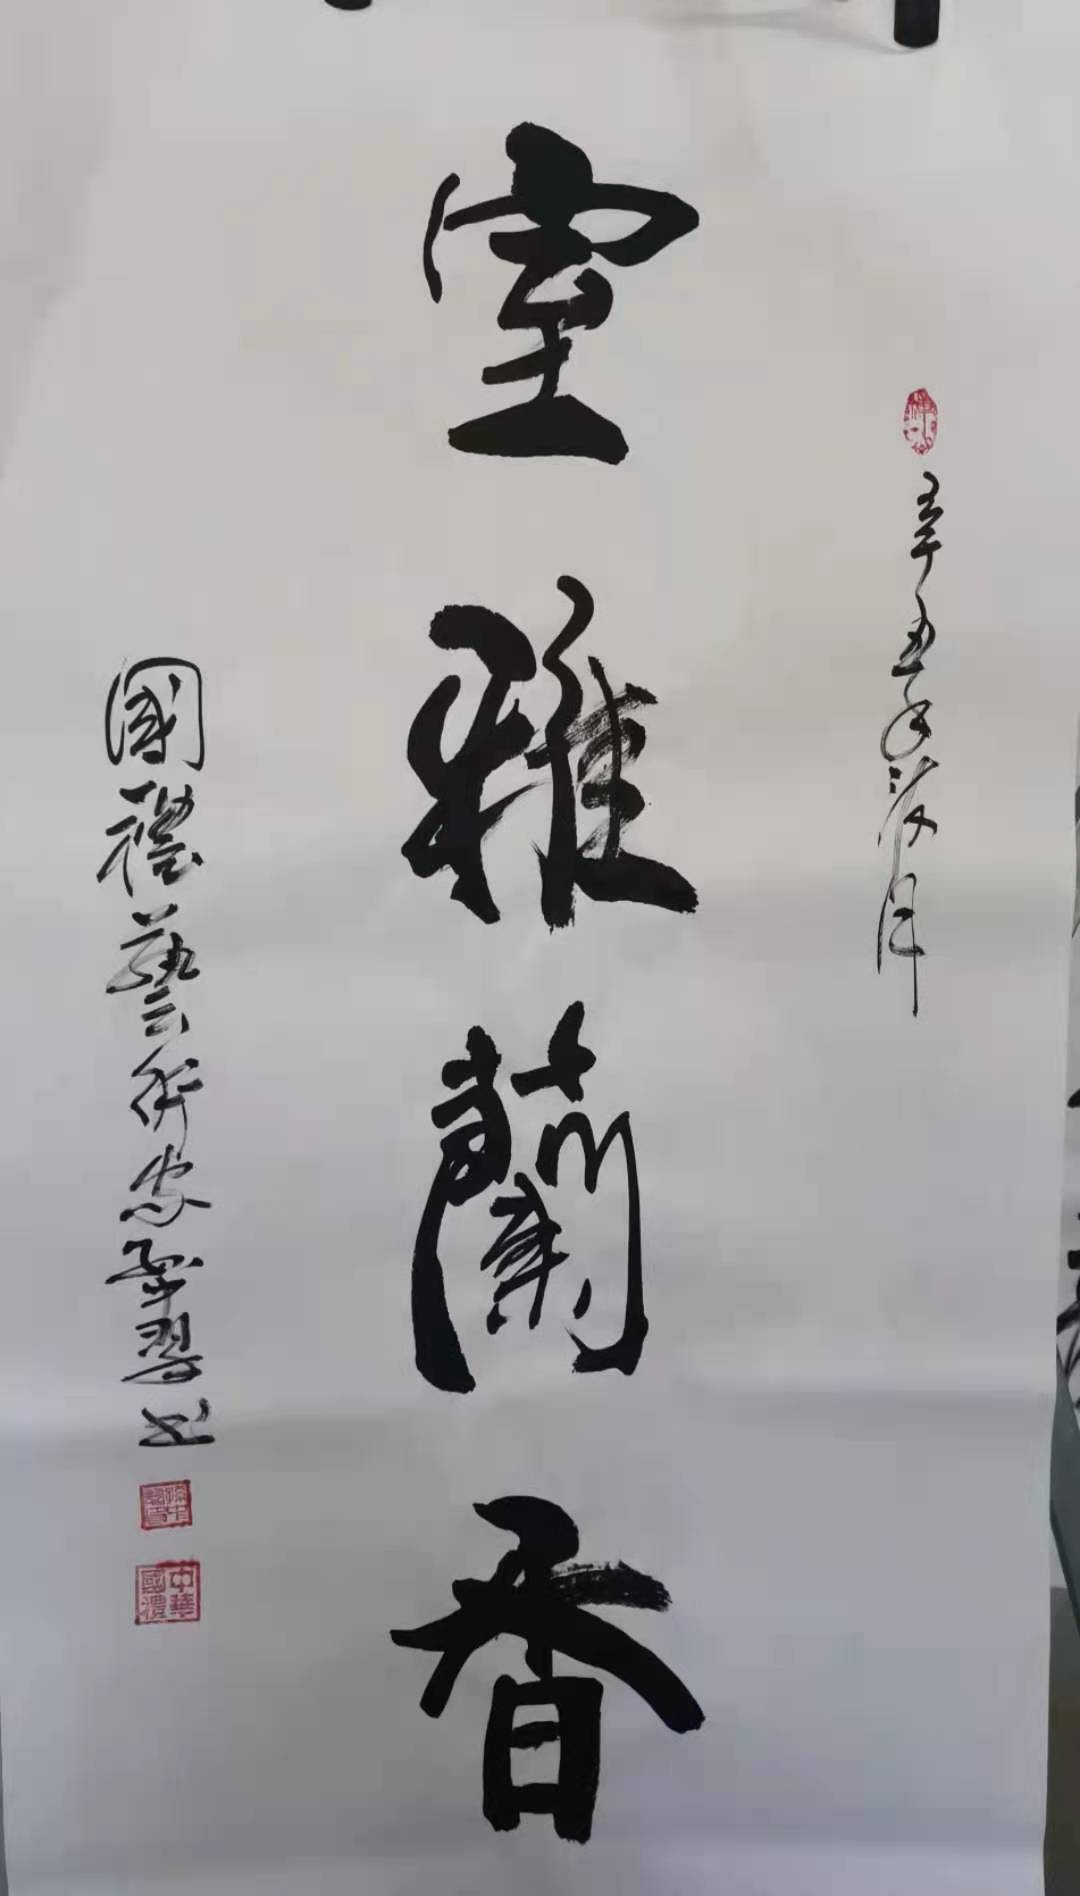 辛丑年荷月
室雅蘭香
國禮藝術家孫翠書
中華國禮